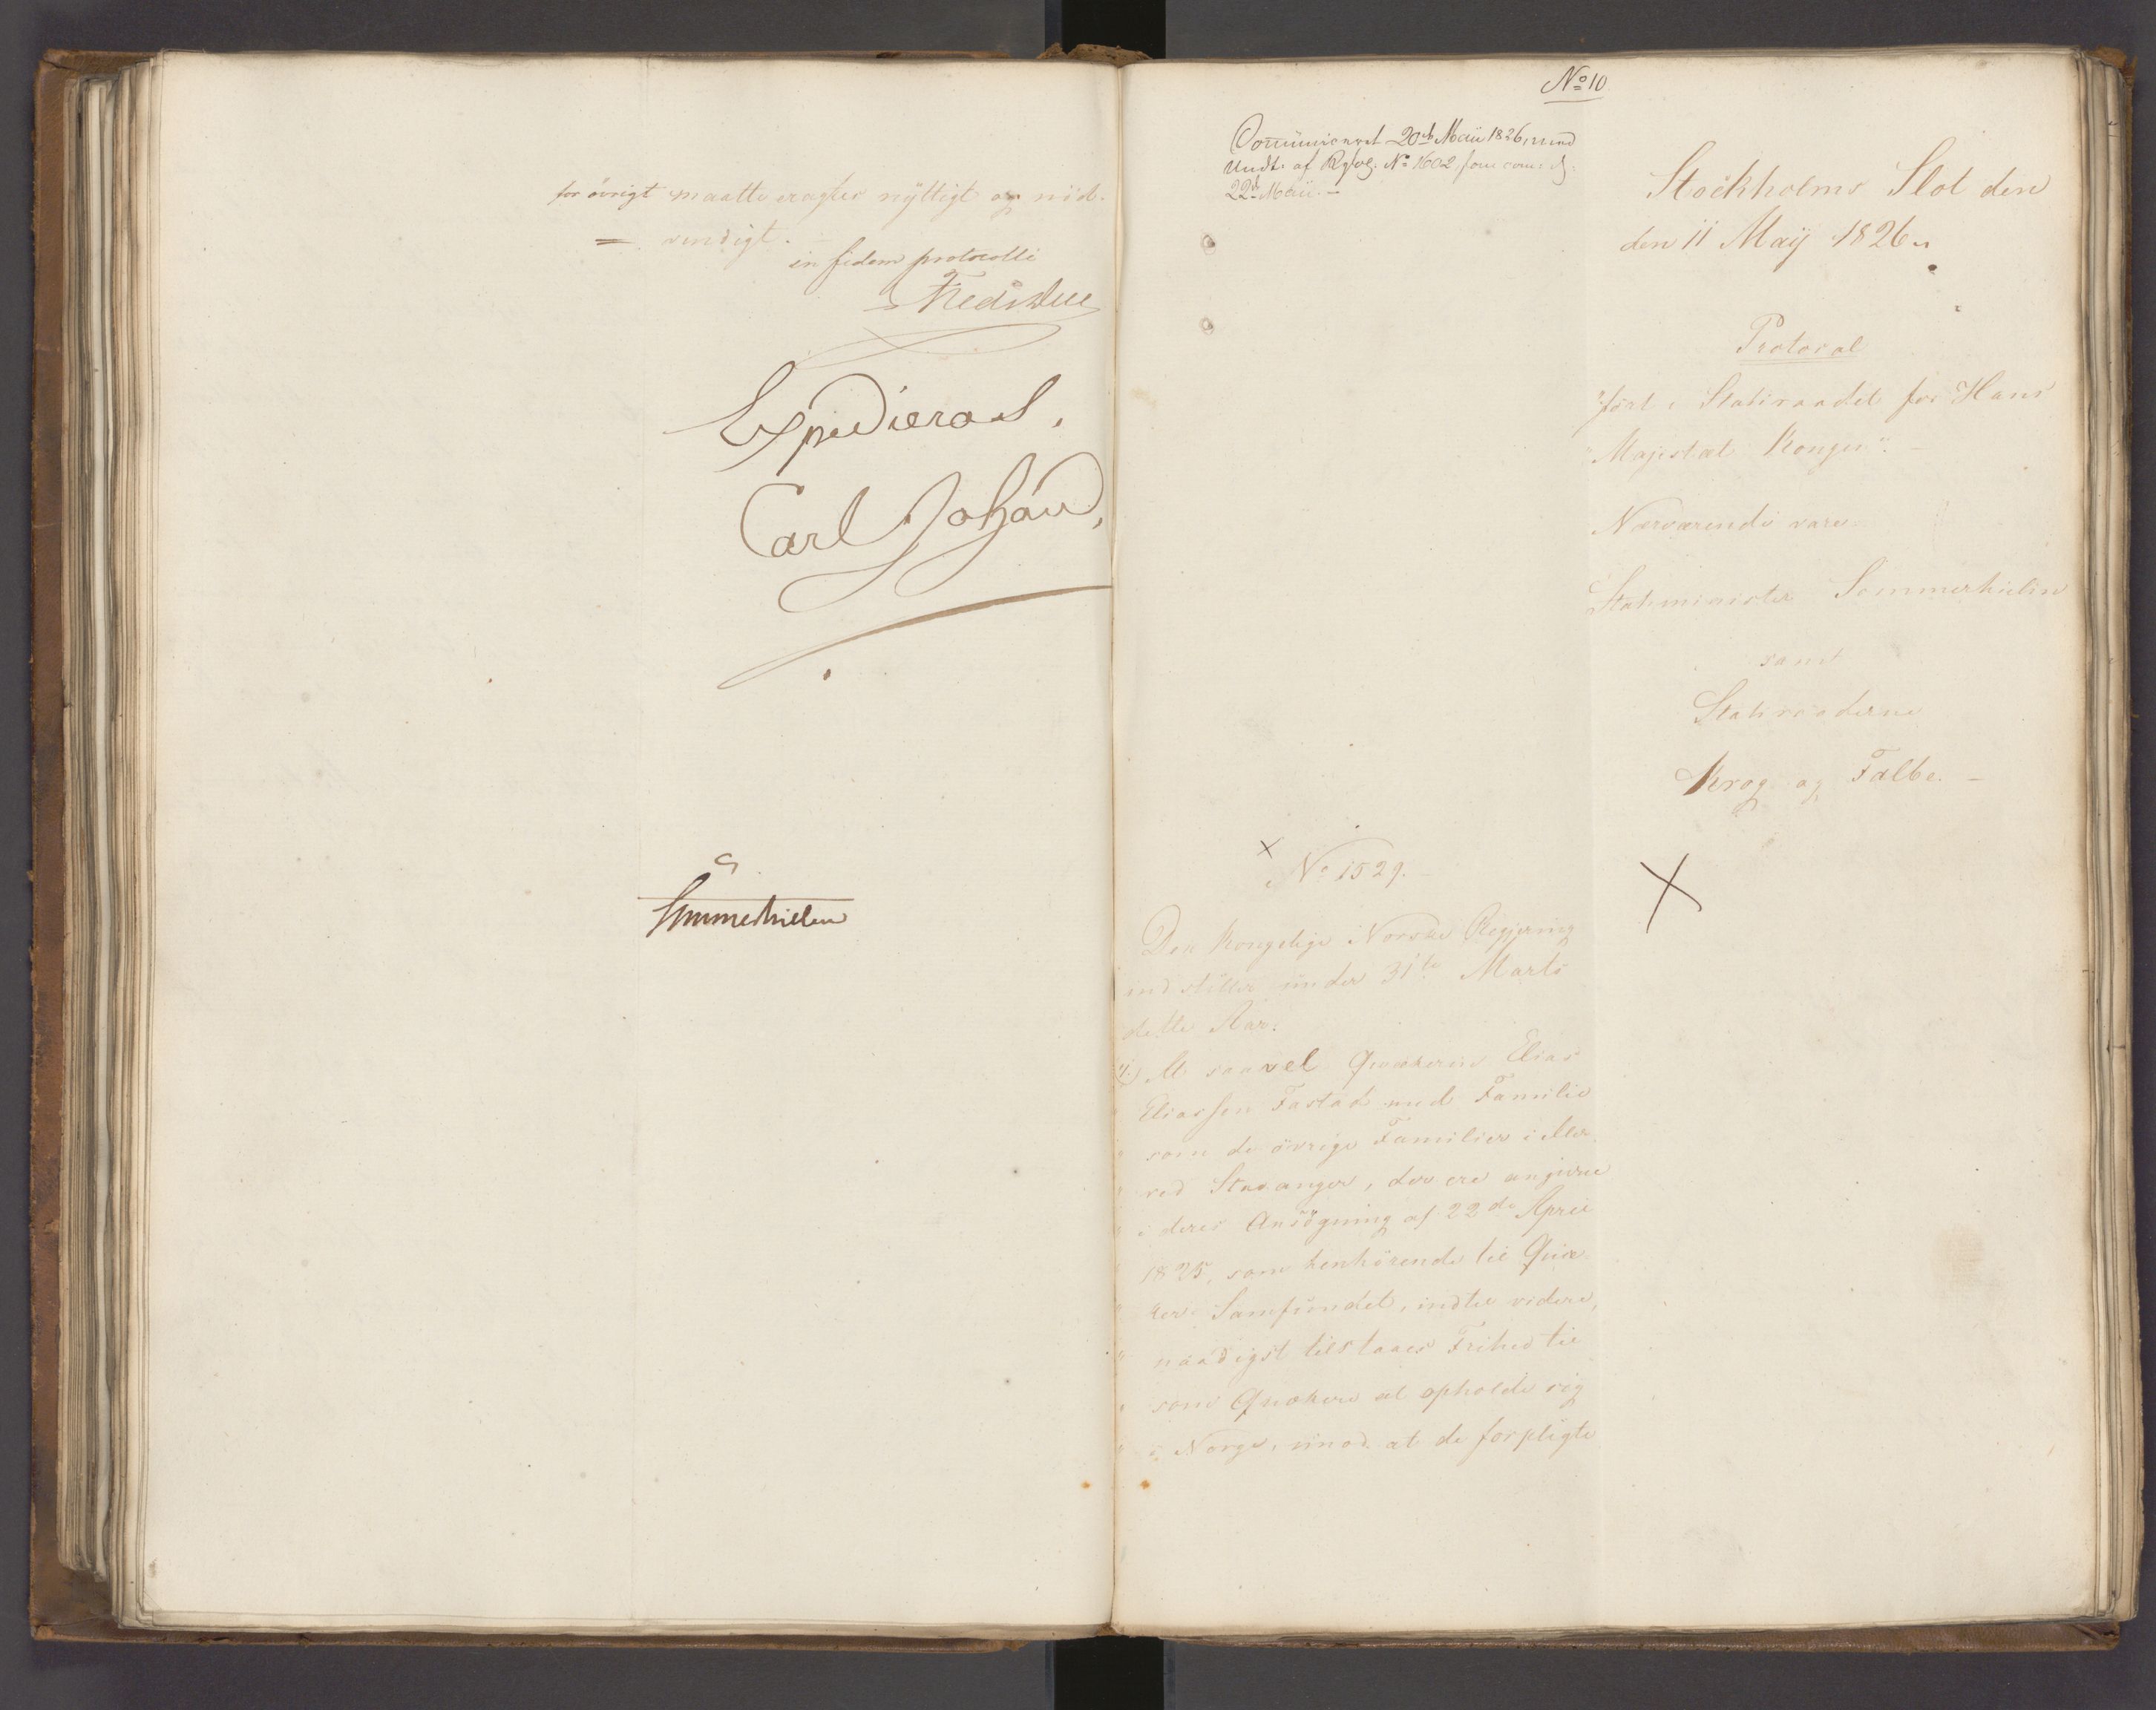 for övrigt maatte eragtes nÿttigt og nöd-
= vendigt. -
in fidem protocolli
Fredr Due
Expedieras.
Carl Johan,
Sommerhielm
No 10
Communiceret 20de Maii 1826, med
Undt. af Rgfol. No 1602, som com: d.
22d Maii. -
Stockholms Slot den
den 11 Maÿ 1826.
Protocol
"fört i Statsraadet for Hans
"Majestæt Kongen". -
Nærværende vare
Statsminister Sommerhielm
samt
Statsraaderne
Krog og Falbe. -
No 1529. -
Den Kongelige Norske Regjering
indstiller under 31te Marts
dette Aar:
"1.) At saavel Qvækeren Elias
" Eliassen Tastad med Familie
" som de övrige Familier i eller
" ved Stavanger, der ere angivne
" i deres Ansögning af 22de April
" 1825, som henhörende til Qvæ-
" ker-Samfundet, indtil videre,
" naadigst tilstaaes Frihed til
" som Qvækere at opholde sig
" i Norge, imod at de forpligte